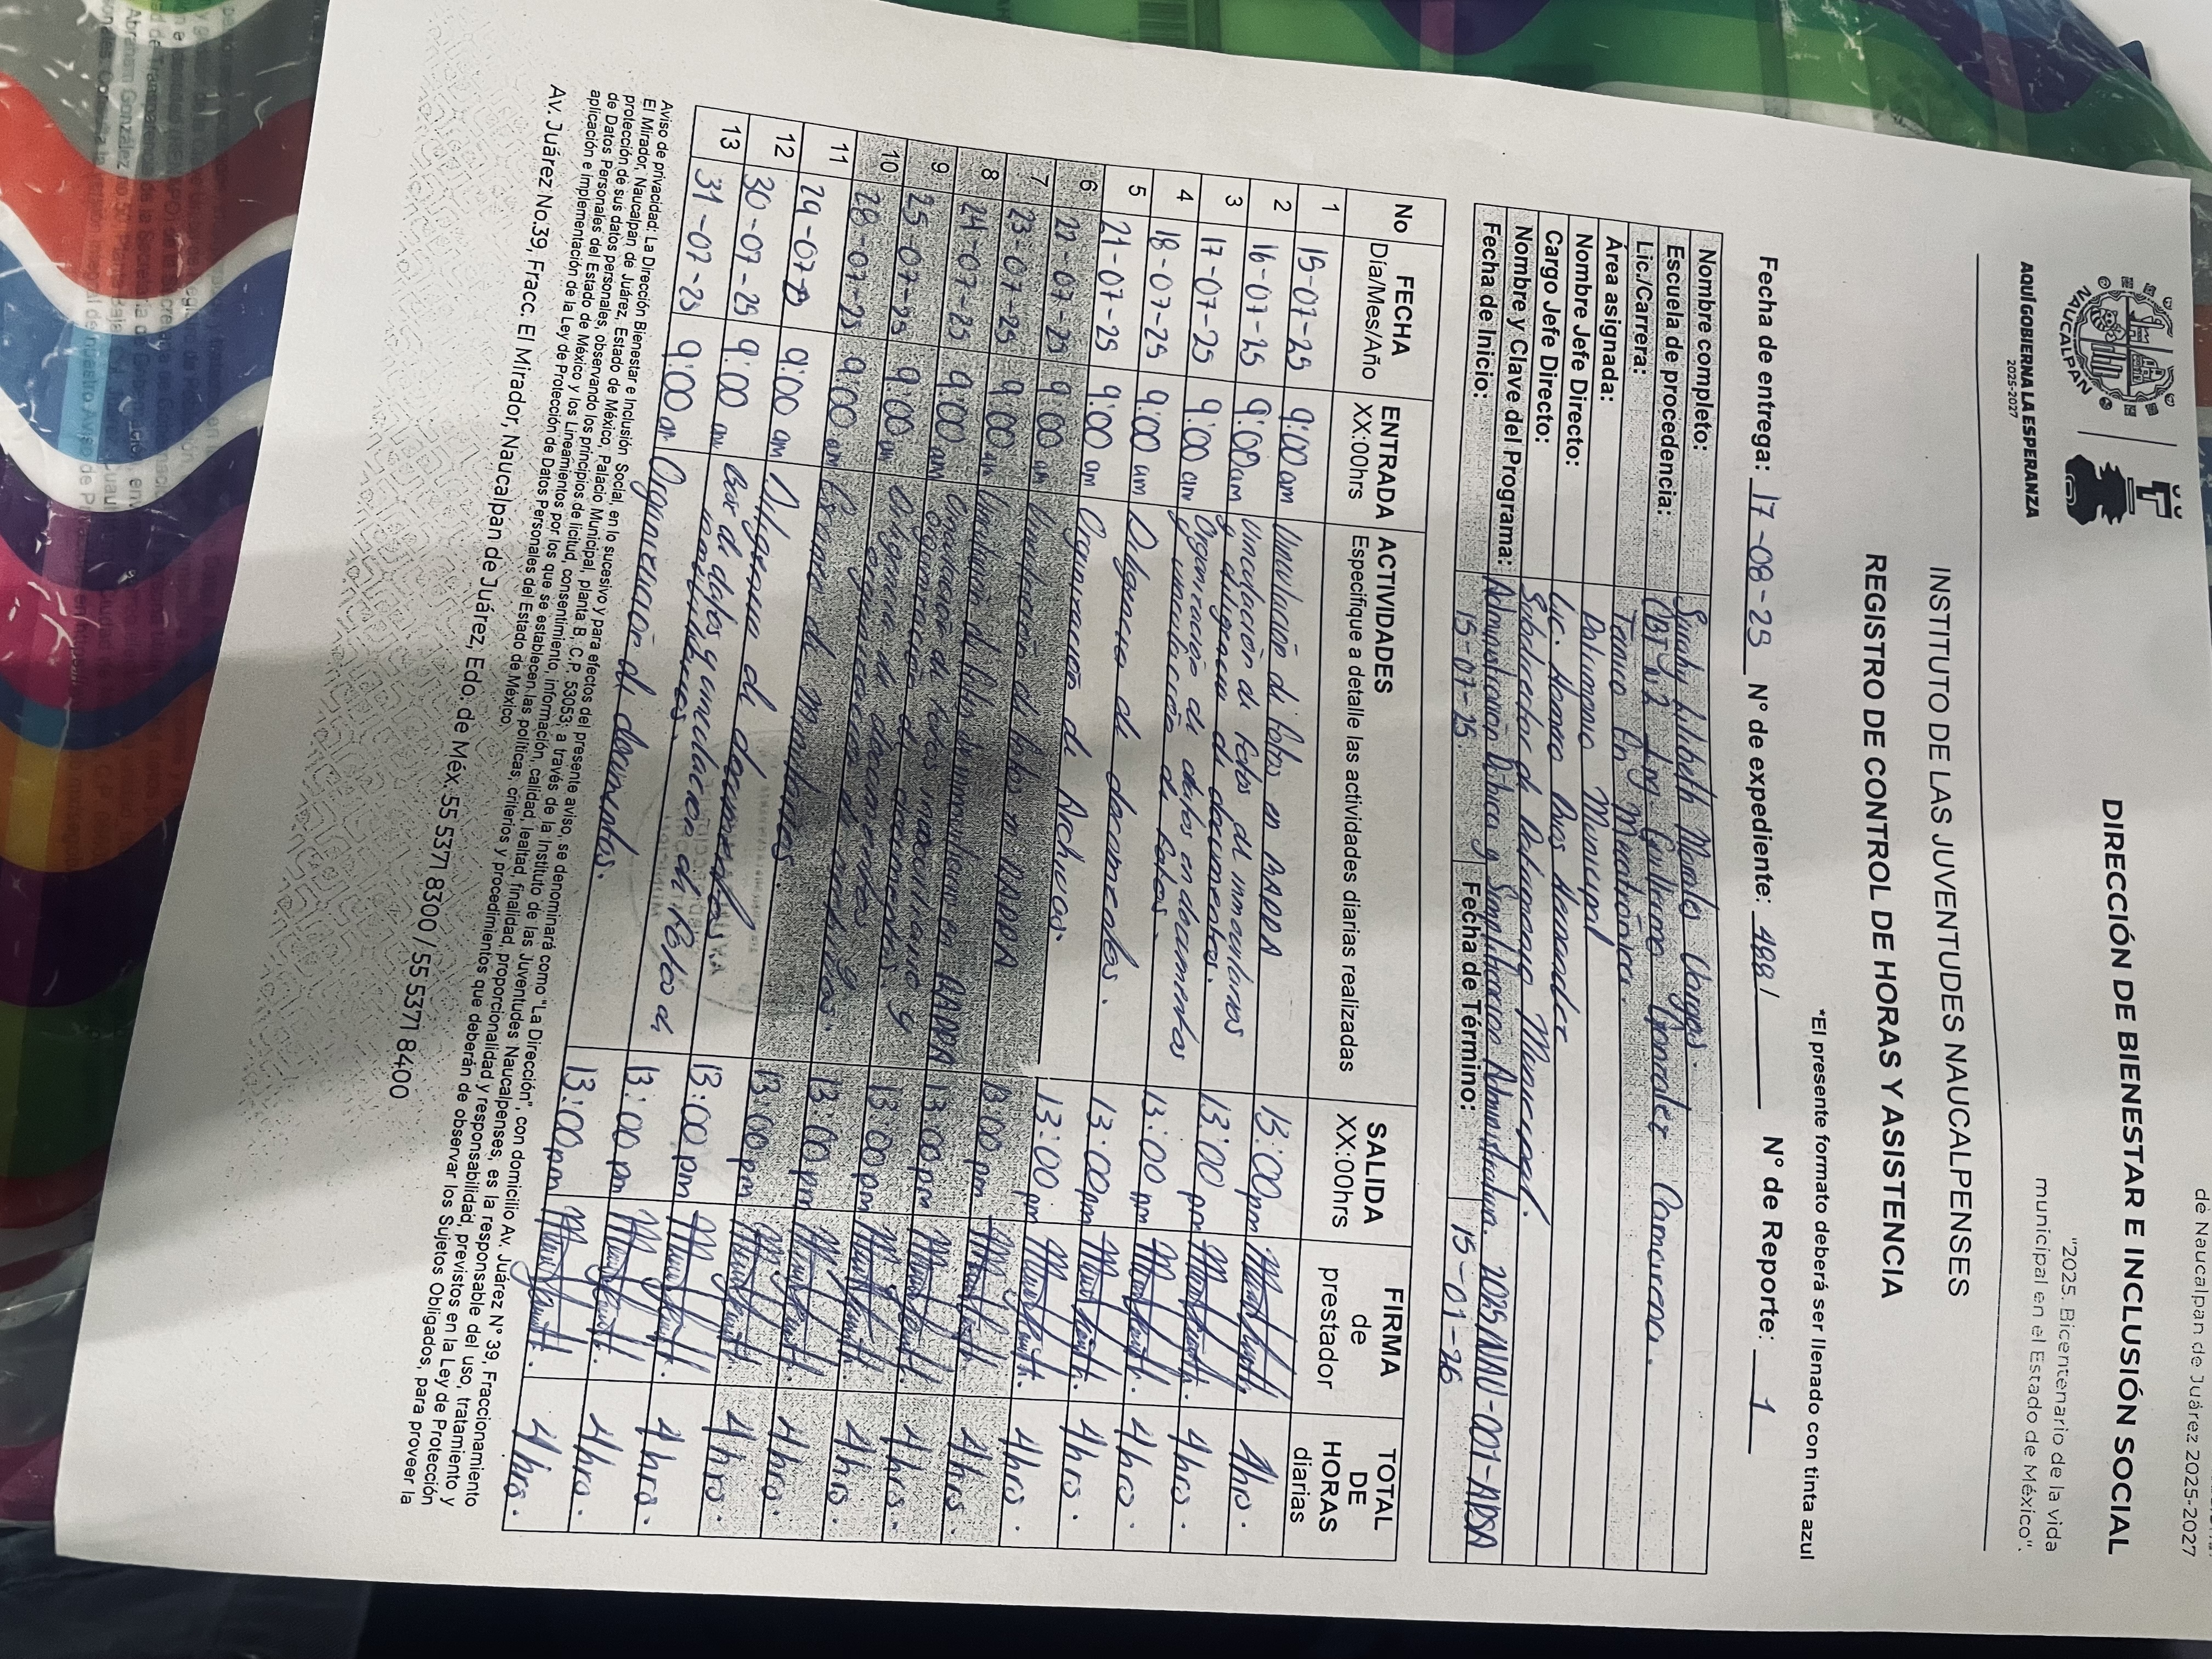 de Naucalpan de Juárez 2025-2027
DIRECCIÓN DE BIENESTAR E INCLUSIÓN SOCIAL
"2025. Bicentenario de la vida
municipal en el Estado de México".
NAUCALPAN
AQUÍ GOBIERNA LA ESPERANZA
2025-2027
INSTITUTO DE LAS JUVENTUDES NAUCALPENSES
REGISTRO DE CONTROL DE HORAS Y ASISTENCIA
*El presente formato deberá ser llenado con tinta azul
Fecha de entrega: 17-08-25 N° de expediente: 488/ N° de Reporte: 1
Nombre completo: Lilibeth Morales Vargas.
Escuela de procedencia: CBT N.2 Ing. Guillermo González Camarena.
Lic./Carrera: Técnico En Mecatrónica.
Área asignada: Patrimonio Municipal
Nombre Jefe Directo: Lic. Hernandez
Cargo Jefe Directo: Subdirector de Patrimonio Municipal.
Nombre y Clave del Programa: Administración Pública y Simplificación Administrativa. 2025NAU-001-APSA
Fecha de Inicio: 15-07-25 Fecha de Término: 15-01-26
No FECHA Día/Mes/Año ENTRADA XX:00hrs ACTIVIDADES Especifique a detalle las actividades diarias realizadas SALIDA XX:00hrs FIRMA de prestador TOTAL DE HORAS diarias
1 15-07-25 9:00 am Vinculación de fotos en 13:00 pm 4hrs.
2 16-07-25 9:00 am Vinculación de fotos de inmobiliarios y diligencia de documentos. 13:00 pm 4hrs.
3 17-07-25 9:00 am Organización de datos en documentos y vinculación de fotos. 13:00 pm 4hrs.
4 18-07-25 9:00 am Diligencia de documentos. 13:00 pm 4hrs.
5 21-07-25 9:00 am Organización de Archivos. 13:00 pm 4hrs.
6 22-07-25 9:00 am Vinculación de fotos 13:00 pm 4hrs.
7 23-07-25 9:00 am Vinculación de fotos de en 13:00 pm 4hrs.
8 24-07-25 9:00 am Vinculación de fotos inmobiliario y organización de documentos. 13:00 pm 4hrs.
9 25-07-25 9:00 am Diligencia de documentos y organización de archivos. 13:00 pm 4hrs.
10 28-07-25 9:00 am de mobiliarios. 13:00 pm 4hrs.
11 29-07-25 9:00 am Diligencia de documentos 13:00 pm 4hrs.
12 30-07-25 9:00 am Base de datos y vinculación de fotos de mobiliarios. 13:00 pm 4hrs.
13 31-07-25 9:00 am Organización de documentos. 13:00 pm 4hrs.
Aviso de privacidad: La Dirección Bienestar e Inclusión Social, en lo sucesivo y para efectos del presente aviso, se denominará como "La Dirección", con domicilio Av. Juárez N° 39, Fraccionamiento
El Mirador, Naucalpan de Juárez, Estado de México, Palacio Municipal, planta B, C.P. 53053; a través de la Instituto de las Juventudes Naucalpenses, es la responsable del uso, tratamiento y
protección de sus datos personales, observando los principios de licitud, consentimiento, información, calidad, lealtad, finalidad, proporcionalidad y responsabilidad, previstos en la Ley de Protección
de Datos Personales del Estado de México y los Lineamientos por los que se establecen las políticas, criterios y procedimientos que deberán de observar los Sujetos Obligados, para proveer la
aplicación e implementación de la Ley de Protección de Datos Personales del Estado de México.
Av. Juárez No.39, Fracc. El Mirador, Naucalpan de Juárez, Edo. de Méx. 55 5371 8300 / 55 5371 8400